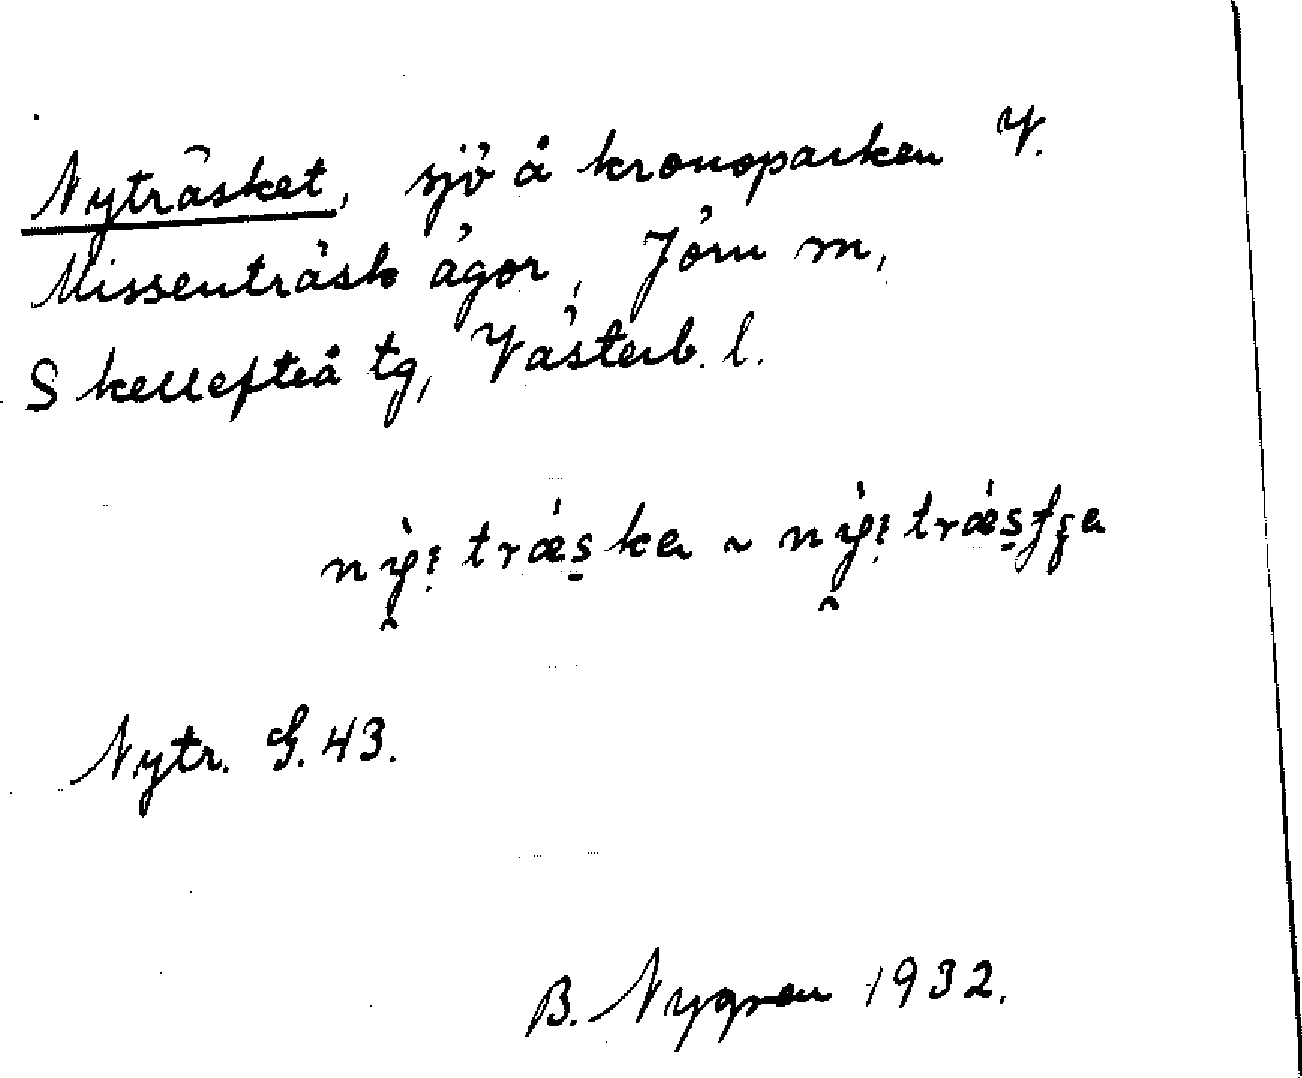 Nyträsket, sjö å kronoparken V.
Missenträsk ägor, Jörn sn,
Skellefteå tg, Västerb. l.
nỳ: trǽska ~ nỳ: trǽstʃa
Nytr. G. 43.
B. Nygren 1932.